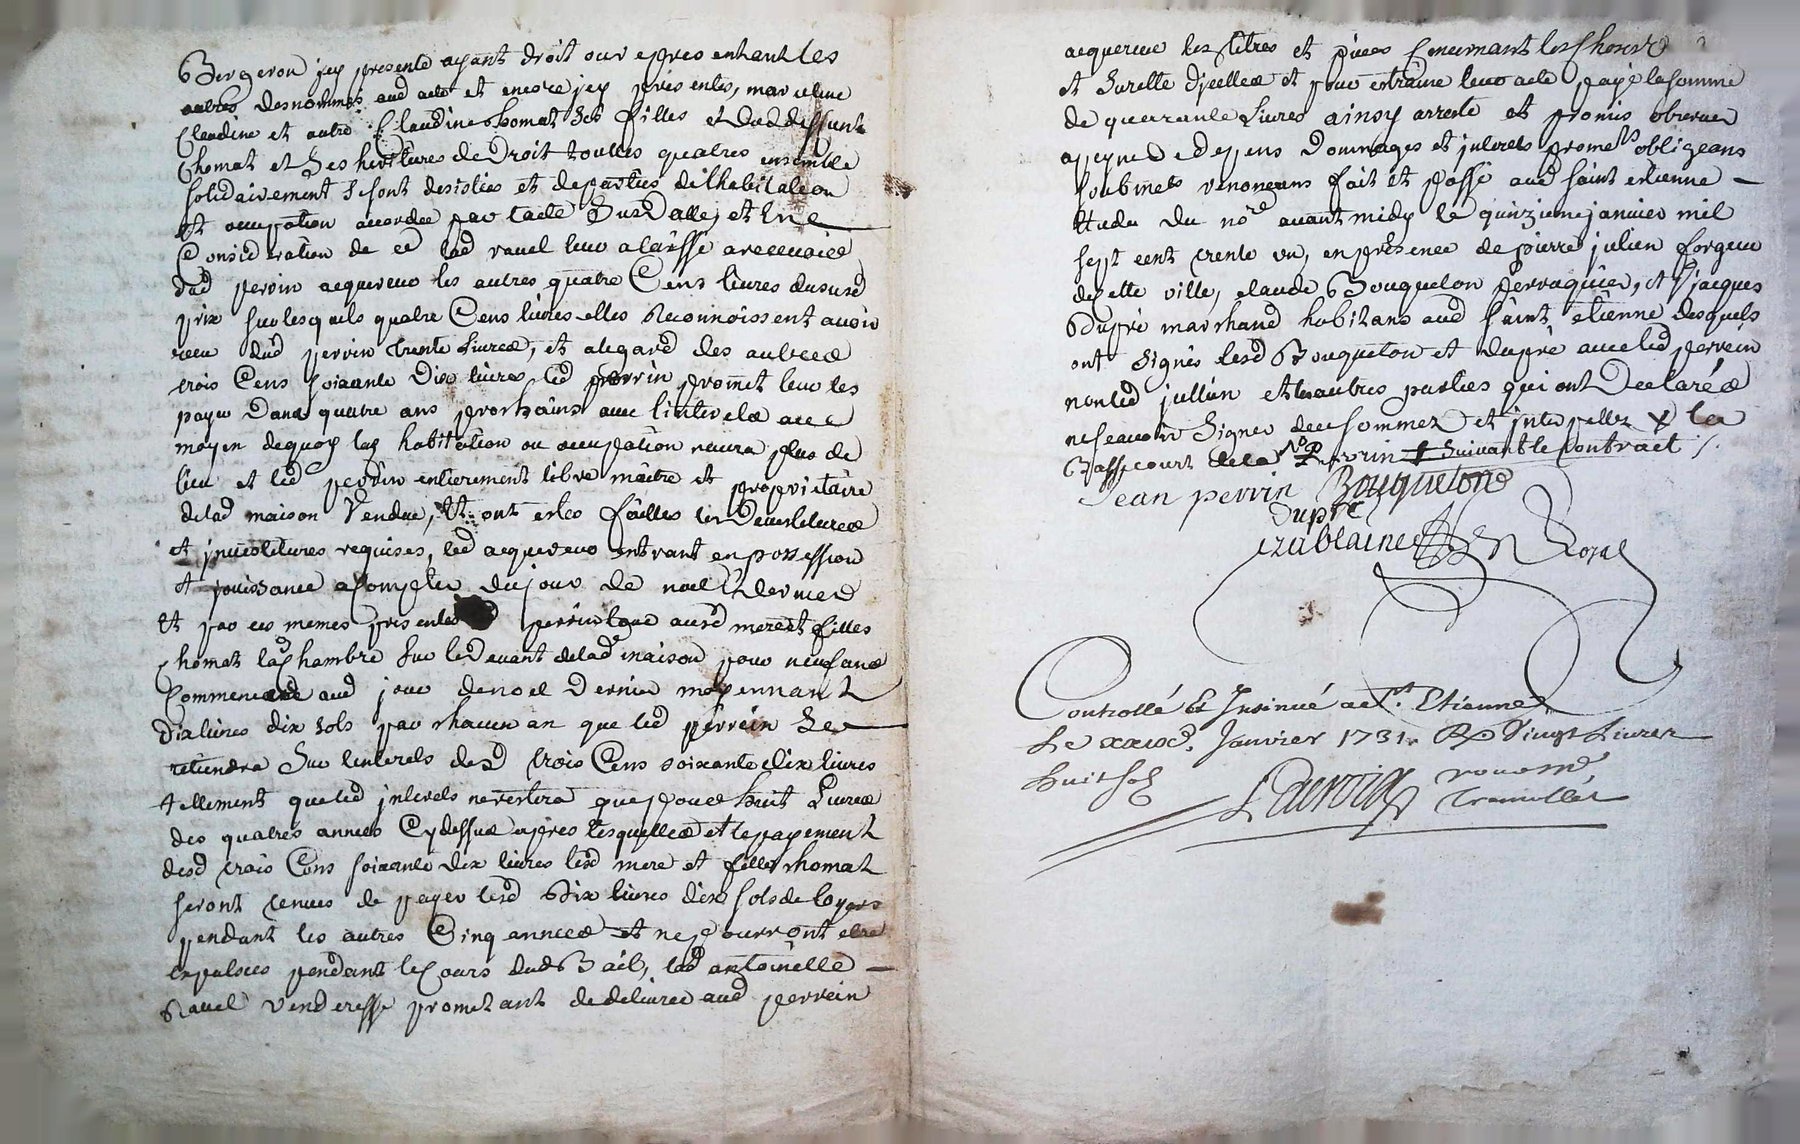 Bergeron jcy presente ayant droit our espres entant les
autres desnommés aud acte et encore jcy presentes, marceline
Claudine et autre Claudine Chomat ses filles et dud deffunt
Chomat et ses heritieres de Droit touttes quatres ensemble
solidairement se sont desisties et departies de lhabitation
et occupation accordée par lacte susd allej et En
Consideration de ce lad ravel leur a laissé a recevoir
dud perrin acquereur les autres quatre Cens livres dususd
prix sur lesquels quatre Cens livres elles Reconnoissent avoir
receu dud perrin trente livres, et alegard des autres
trois Cens soixante Dix livres led perrin promet leur les
payer Dans quatre ans prochains avec linterets au
moyen dequoy lad habitation ou occupation naura plus de
lieu et led perrin entierement libre maitre et proprietaire
delad maison Vendue, Et ont estes failles les Devestitures
et jnvestitures requises, led acquereur entrant en possession
et jouissance a Compter du jour de noel Dernier
Et par ces memes presentes perrin loue ausd mere et filles
Chomat la Chambre sur le Devant delad maison pour neuf ans
Commencés aud jour de noel Dernier moyennant
Dix livres dix sols par chacun an que led perrein se
retiendra sur linterets desd trois Cens soixante dix livres
tellement que led jnterets ne restera que pour huit Livres
des quatres années Cy dessus apres lesquelles et le payement
desd trois Cens soixante dix livres lesd mere et filles Chomat
seront tenues de payer lesd Dix livres dix sols de loyers
pendant les autres Cinq années et ne pourront etre
expulsées pendant le Cours dud Bail, lad antoinette
Ravel venderesse prometant de delivrer aud perrein
acquereur les titres et pieces Concernant les choses
et Surette djcelles et pour estraine leur acte payé la somme
de quarante Livres ainsy arresté et promis observer
a peyne de depens Dommages et jnterets prometts obligeans
soubmets renoncans fait et passé aud saint etienne
Etude du nore avant midy le quinzieme janvier mil
sept cent trente un, en presence de pierre julien forgeur
de cette ville, claude Bouqueton perruquier, et jacques
Dupré marchand habitans aud saint etienne desquels
ont signés lesd Bouqueton et dupré avec led perrein
non led jullien et les autres parties qui ont Declarés
ne scavoir signer de ce sommez et jnterpellez x la
Basse court de la Ve Perrin suivant le Contract
Jean perrin Bouqueton
Dupré
Royal
Controllé Et Insinué a St. Etienne
Le Janvier 1731. R Vingt Livres
huit sols